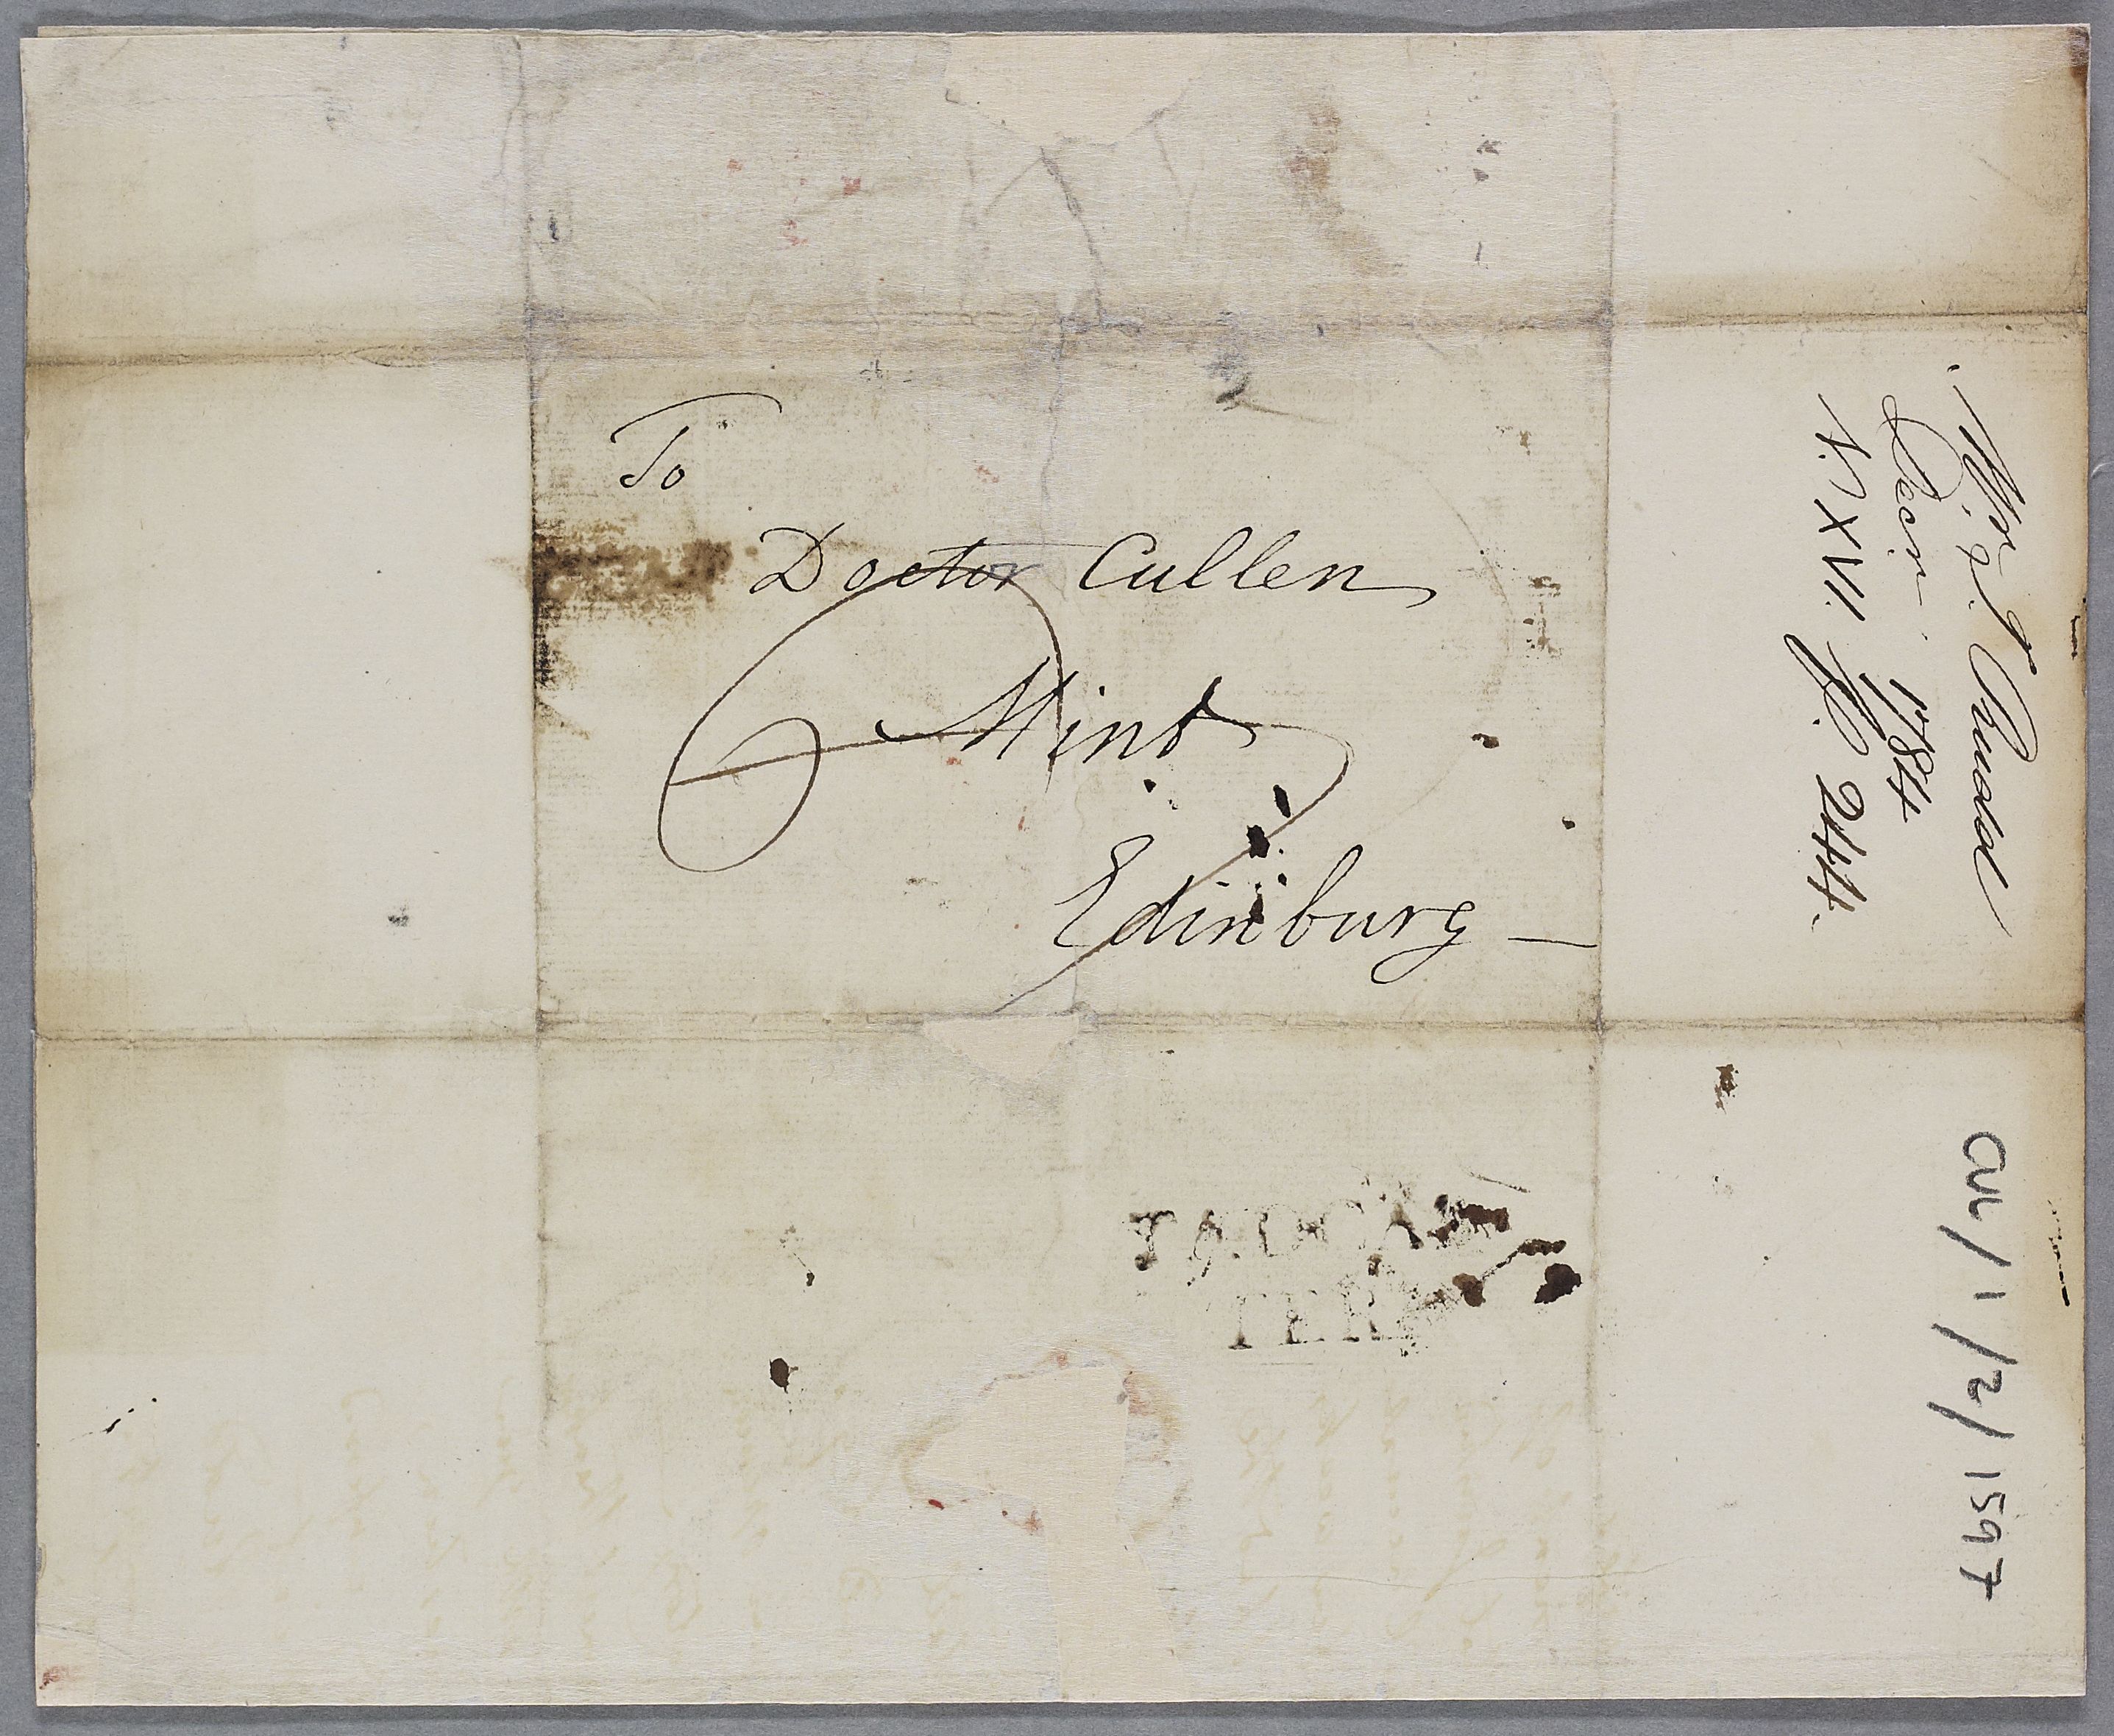 To
Doctor Cullen
Mint
Edinburg —
Decr. 1784
V. XVI. P. 244.
TADCAS
TER
CUL/1/2/1597